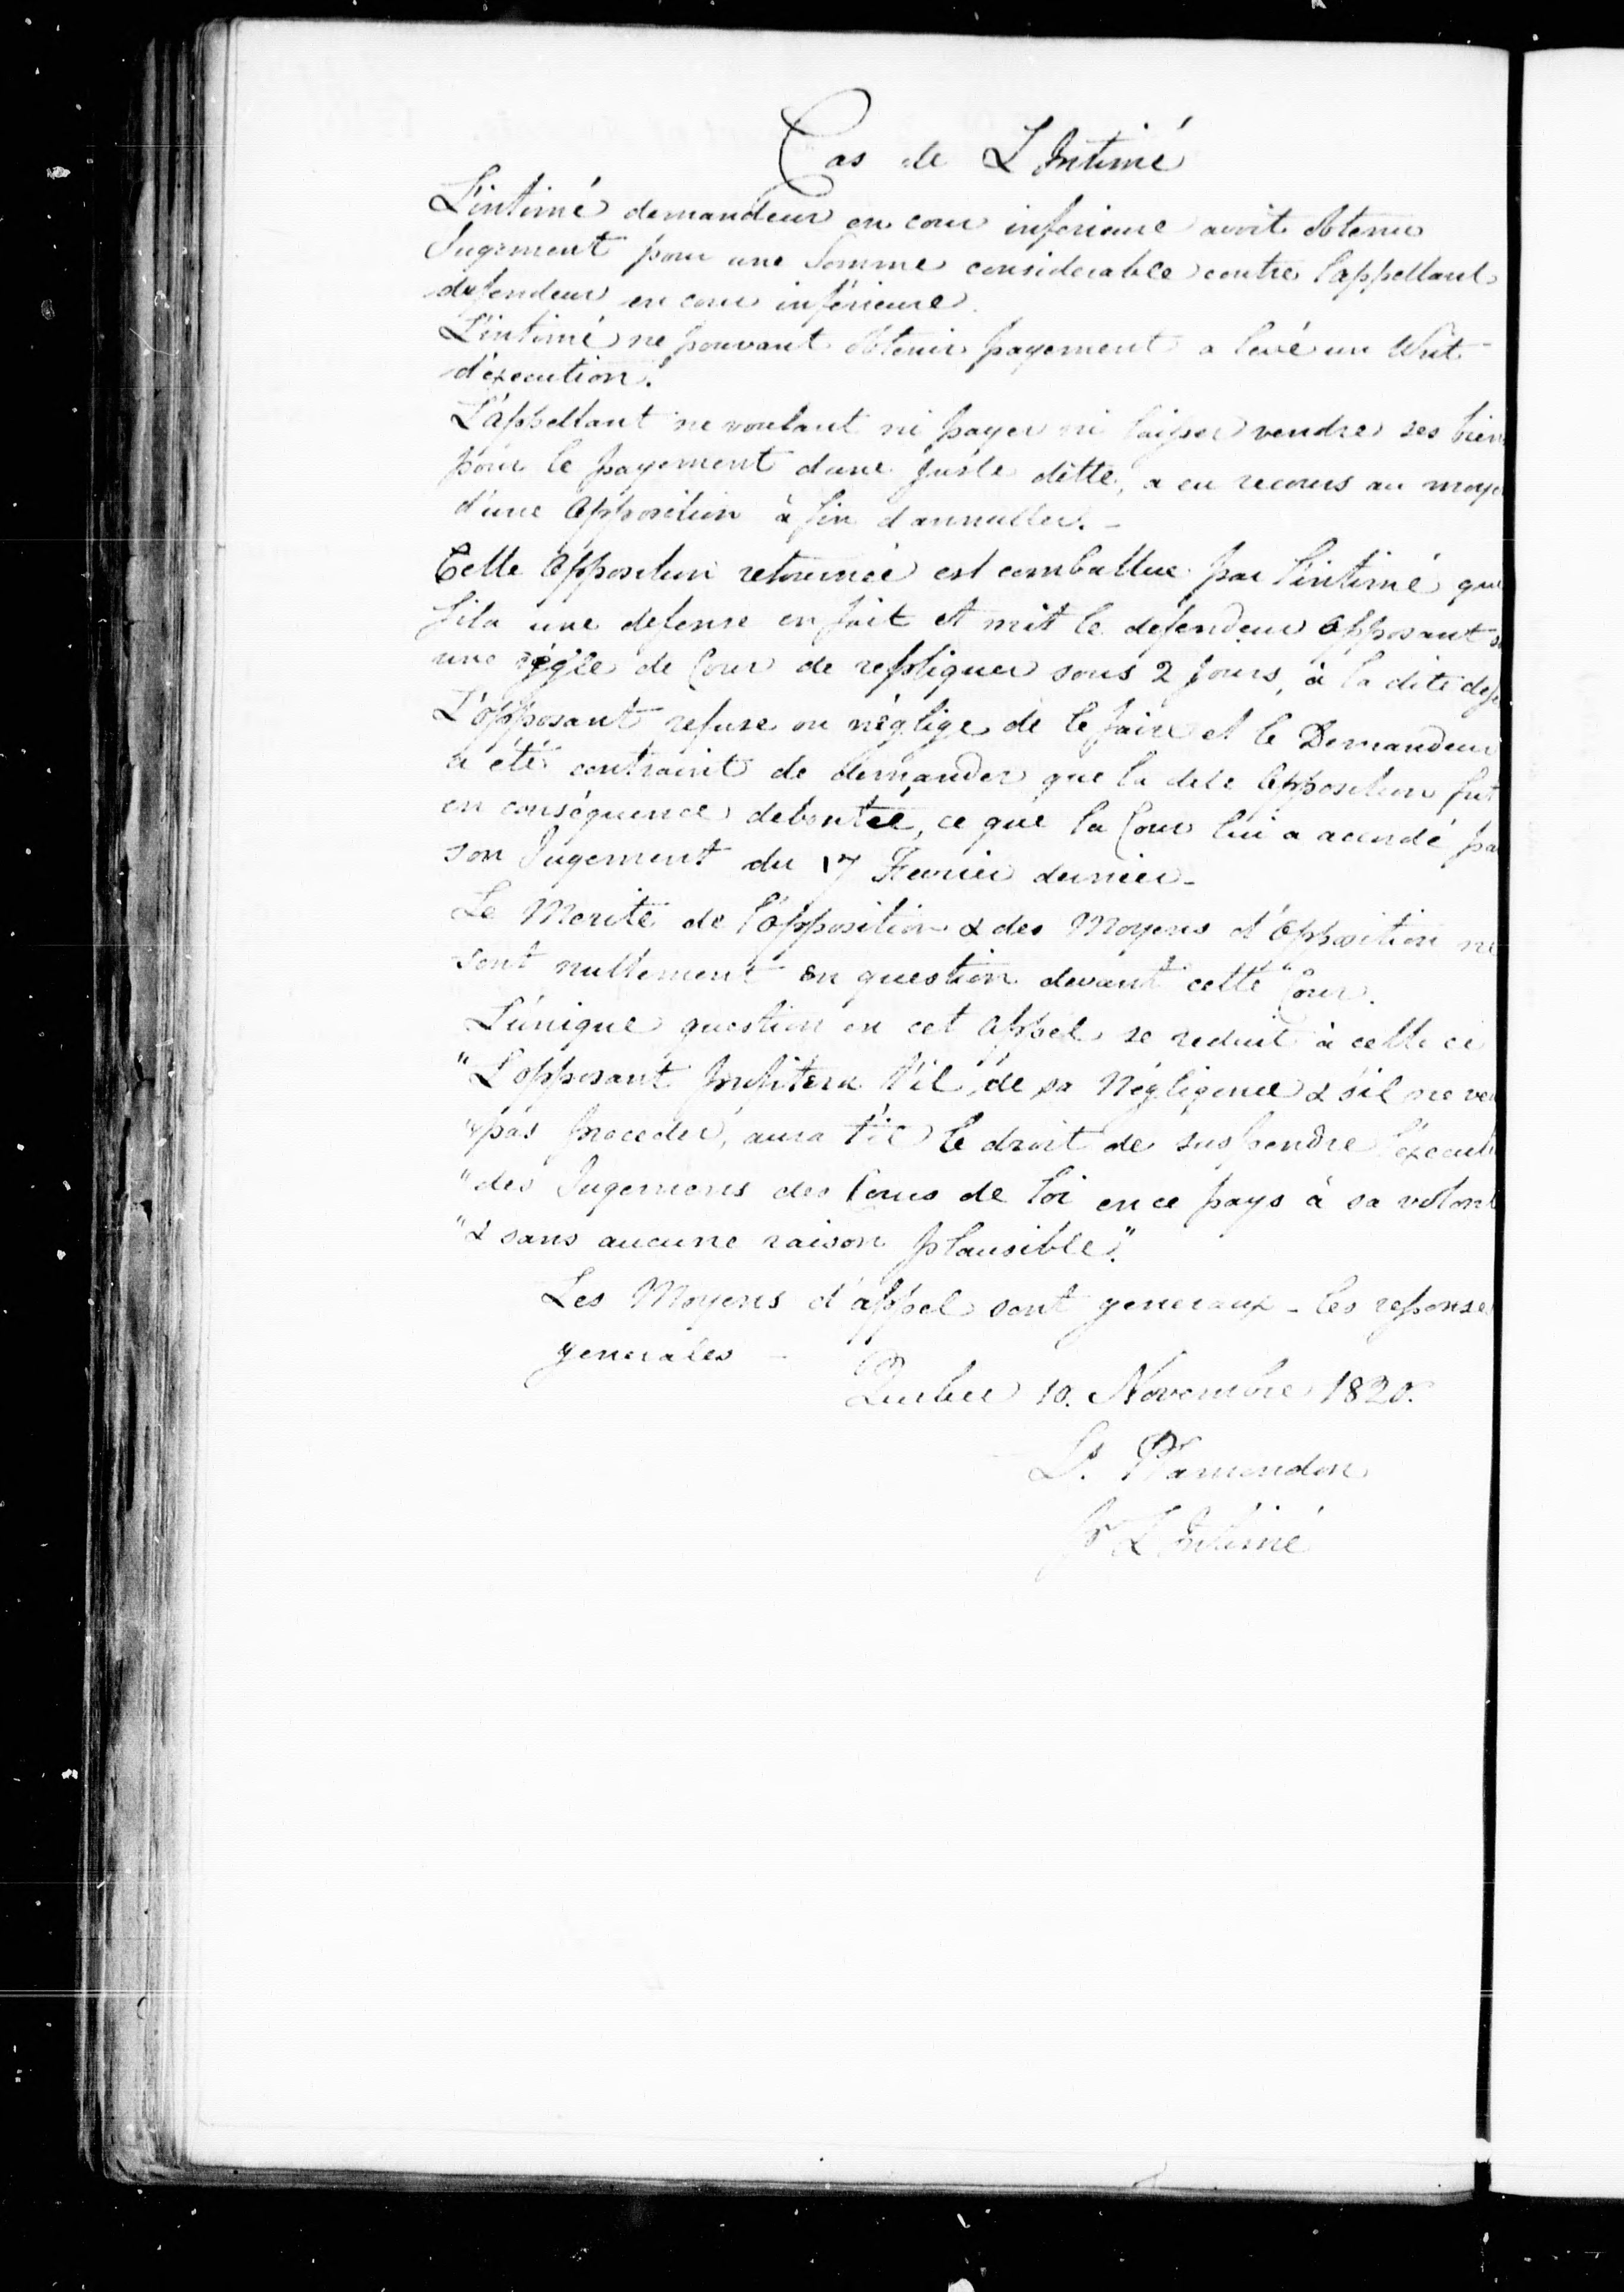 Cas de L'Intimé
L'intimé demandeur en cour inferieure avoit obtenu
Jugement pour une Somme considerable contre l'appellant
defendeur en cour inférieure.
L'intimé ne pouvant obtenir payement a levé un Writ
d'éxecution.
L'appellant ne voulant ni payer ni laisser vendre ses bien
pour le payement d'une juste dette, a eu recours au moye
d'une Opposition à fin d'annuller. -
Cette Opposition retournée est combattue par l'intimé qui
fila une defense en fait et mit le défendeur Opposant s
une régle de Cour de repliquer sous 2 Jours, à la dite defe
L'Opposant refuse ou néglige de le faire et le Demandeur
a été contraint de demander que la dite Opposition fut
en conséquence deboutée, ce que la Cour lui a accordé pa
son Jugement du 17 Fevrier dernier -
Le Merite de l'Opposition & des Moyens d'Opposition ne
sont nullement en question devant cette Cour.
L'unique question en cet Appel se reduit à celle ci
"L'opposant profitera t'il de sa Négligence & s'il ne veu
"pas proceder, aura t'il le droit de suspendre l'éxecuti
"des Jugemens des Cours de loi en ce pays à sa volont
"& sans aucune raison plausible".
Les Moyens d'appel sont generaux - les reponses
generales -
Quebec 10. Novembre 1820.
Ls. Plamondon
pr L'Intimé